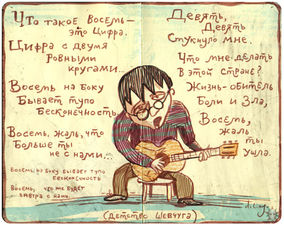 Что такое Восемь –
это Цифра.
Цифра с двумя
Ровными
кругами...
Восемь на боку
Бывает тупо
Бесконечность
Восемь, жаль, что
Больше ты
не с нами...
Восемь на боку бывает тупо
Бесконечность
Восемь, что же будет
завтра с нами
Девять,
Девять
Стукнуло мне.
Что мне делать
В этой стране?
Жизнь – обитель
Боли и Зла,
Восемь,
Жаль
ты
Ушла.
(Детство Шевчуга)